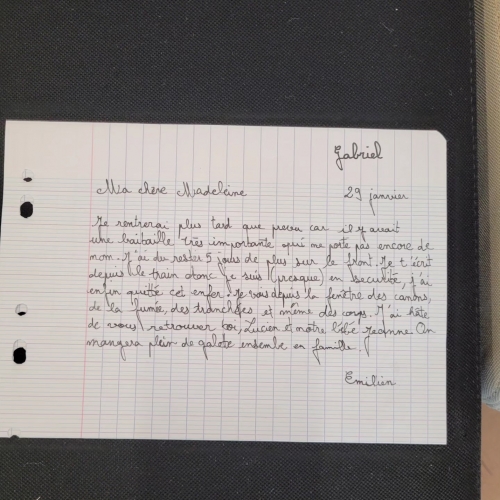 Gabriel
Ma chère Madeleine 29 janvier
Je rentrerai plus tard que prevu car il y avait
une bataille très importante qui me porte pas encore de
nom. J'ai du rester 5 jours de plus sur le front. Je t'écrit
depuis le train donc je suis (presque) en securité, j'ai
enfin quitté cet enfer. Je vois depuis la fenêtre des canons,
de la fumée, des tranchées et même des corps. J'ai hâte
de vous retrouver toi, Lucien et notre bébé Jeanne. On
mangera plein de galote ensemble en famille.
Emilien